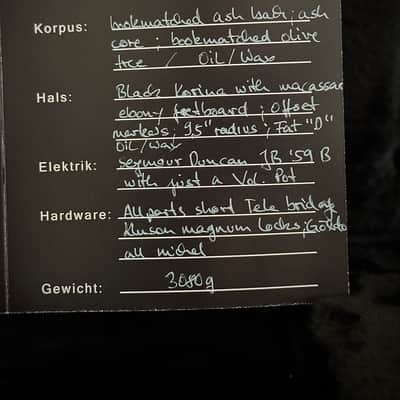 Korpus: bookmatched ash back; ash
core; bookmatched olive
tree / Oil/Wax
Hals: Black Korina with macassar
ebony fretboard; Offset
markers; 9.5" radius; Fat "D"
Oil/Wax
Elektrik: Seymour Duncan JB '59 B
with just a Vol. Pot
Hardware: Allparts short Tele bridge
Kluson magnum locks; Gotoh
all nickel
Gewicht: 3080g